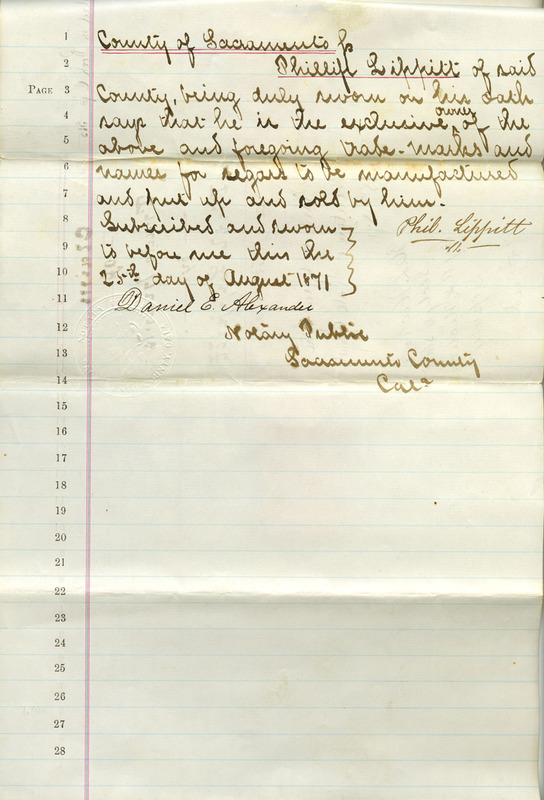 1 County of Sacramento }
2 Phillip Lippitt of said
PAGE 3 County, being duly sworn on his oath
4 says that he is the exclusive owner of the
5 above and foregoing trade-marks and
6 names for segars to be manufactured
7 and put up and sold by him.
8 Subscribed and sworn } Phil. Lippitt
9 to before me this the
10 25th day of August 1871
11 Daniel E. Alexander
12 Notary Public
13 Sacramento County
14 Cala
15
16
17
18
19
20
21
22
23
24
25
26
27
28